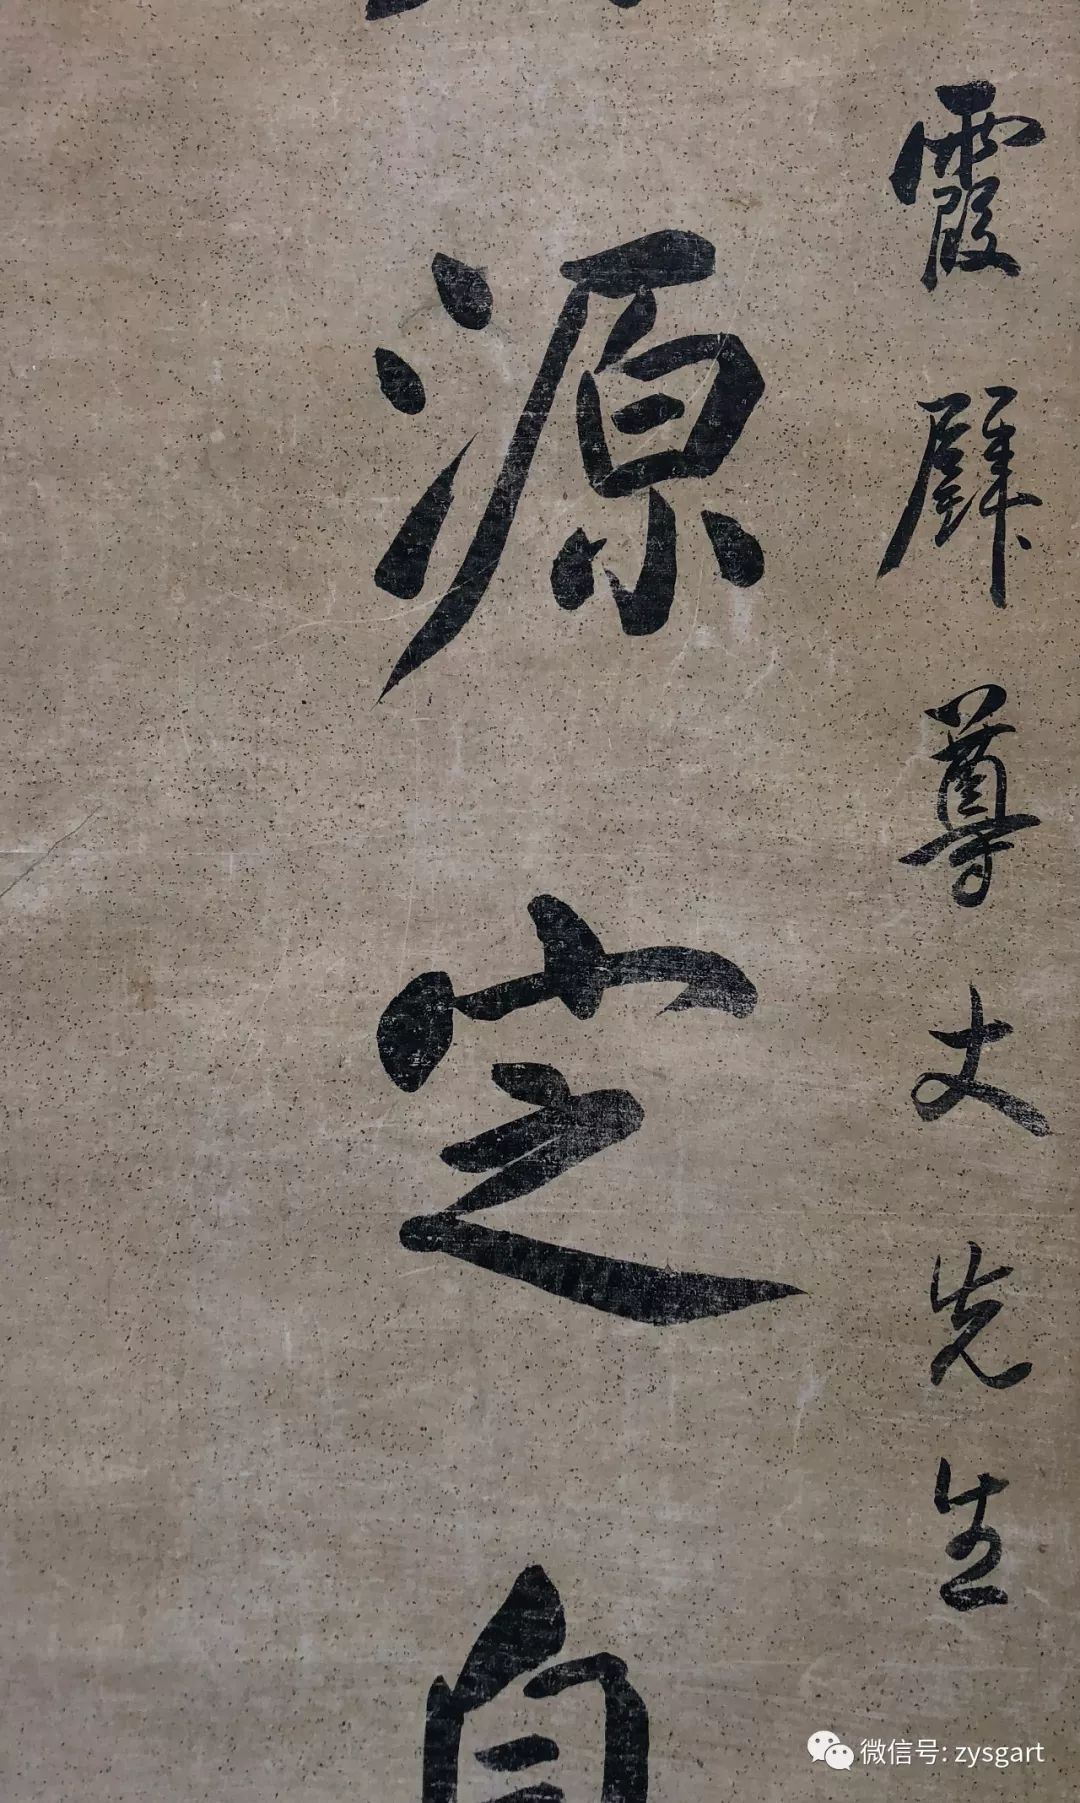 霞壁尊丈先生
源定自
微信号: zysgart